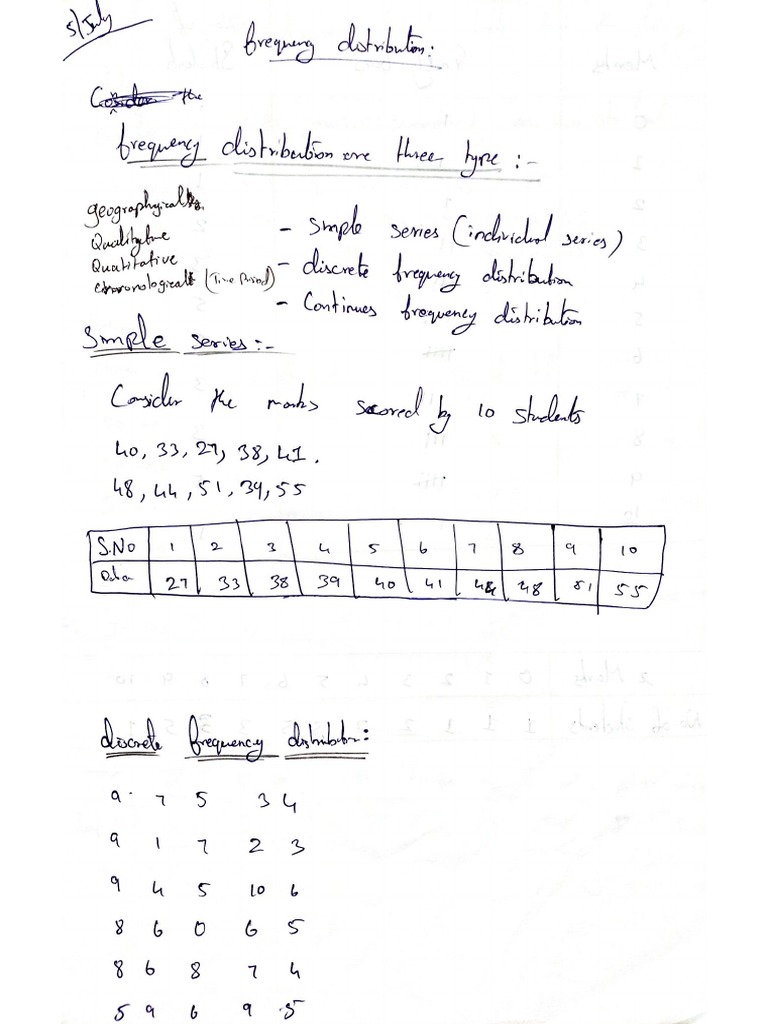 5/July
frequency distribution:
Consider the
frequency distribution are three type :-
geographycal
Qualitytive
Quatitative
Chronological (Time Period)
- Smple series (individual series)
- discrete frequency distribution
- Continues frequency distribution
Smple series :-
Consider the marks scored by 10 students
40, 33, 27, 38, 41.
48, 44, 51, 39, 55
S.No 1 2 3 4 5 6 7 8 9 10
Data 27 33 38 39 40 41 44 48 51 55
discrete frequency distribution:
9 7 5 3 4
9 1 7 2 3
9 4 5 10 6
8 6 0 6 5
8 6 8 7 4
5 9 6 9 5